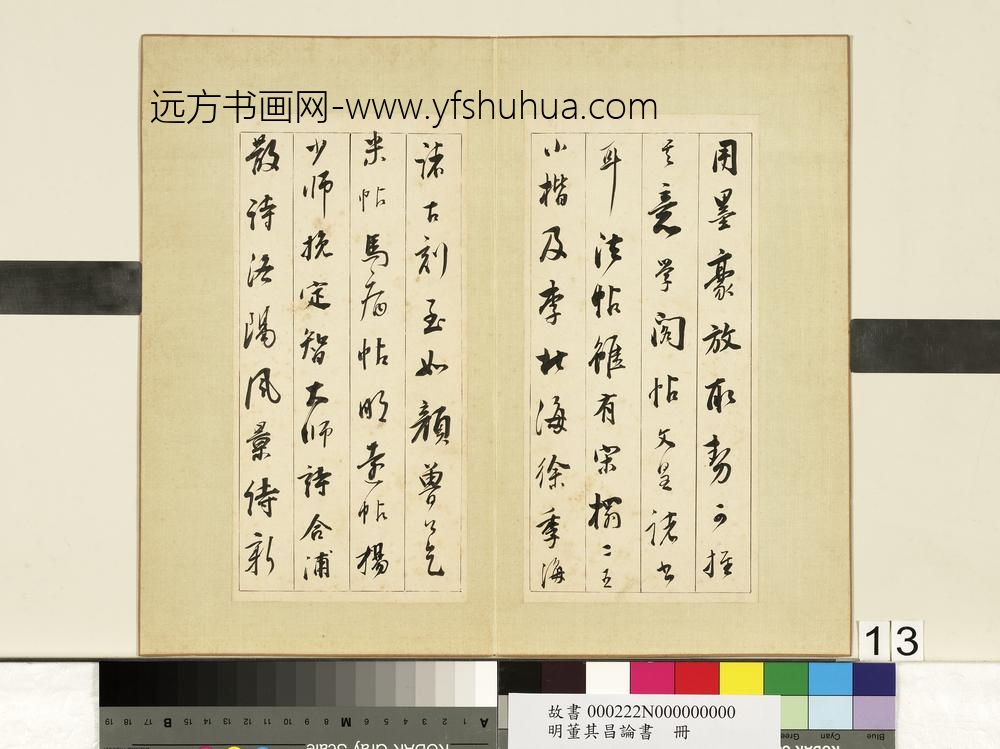 远方书画网-www.yfshuhua.com
用墨豪放取勢可推
其意學閣帖文皇諸書
耳法帖雖有宋榻二王
小楷及李北海徐季海
諸古刻至如顏魯公乞
米帖馬病帖明遠帖楊
少師挽定智大師詩合浦
散詩洛陽風景待新
13
故書 000222N000000000
明董其昌論書 冊
19 18 17 16 15 B 12 11 10 9 8 M 6 5 4 3 2 1 A
KODAK Gray Scale
Green Cyan Blue